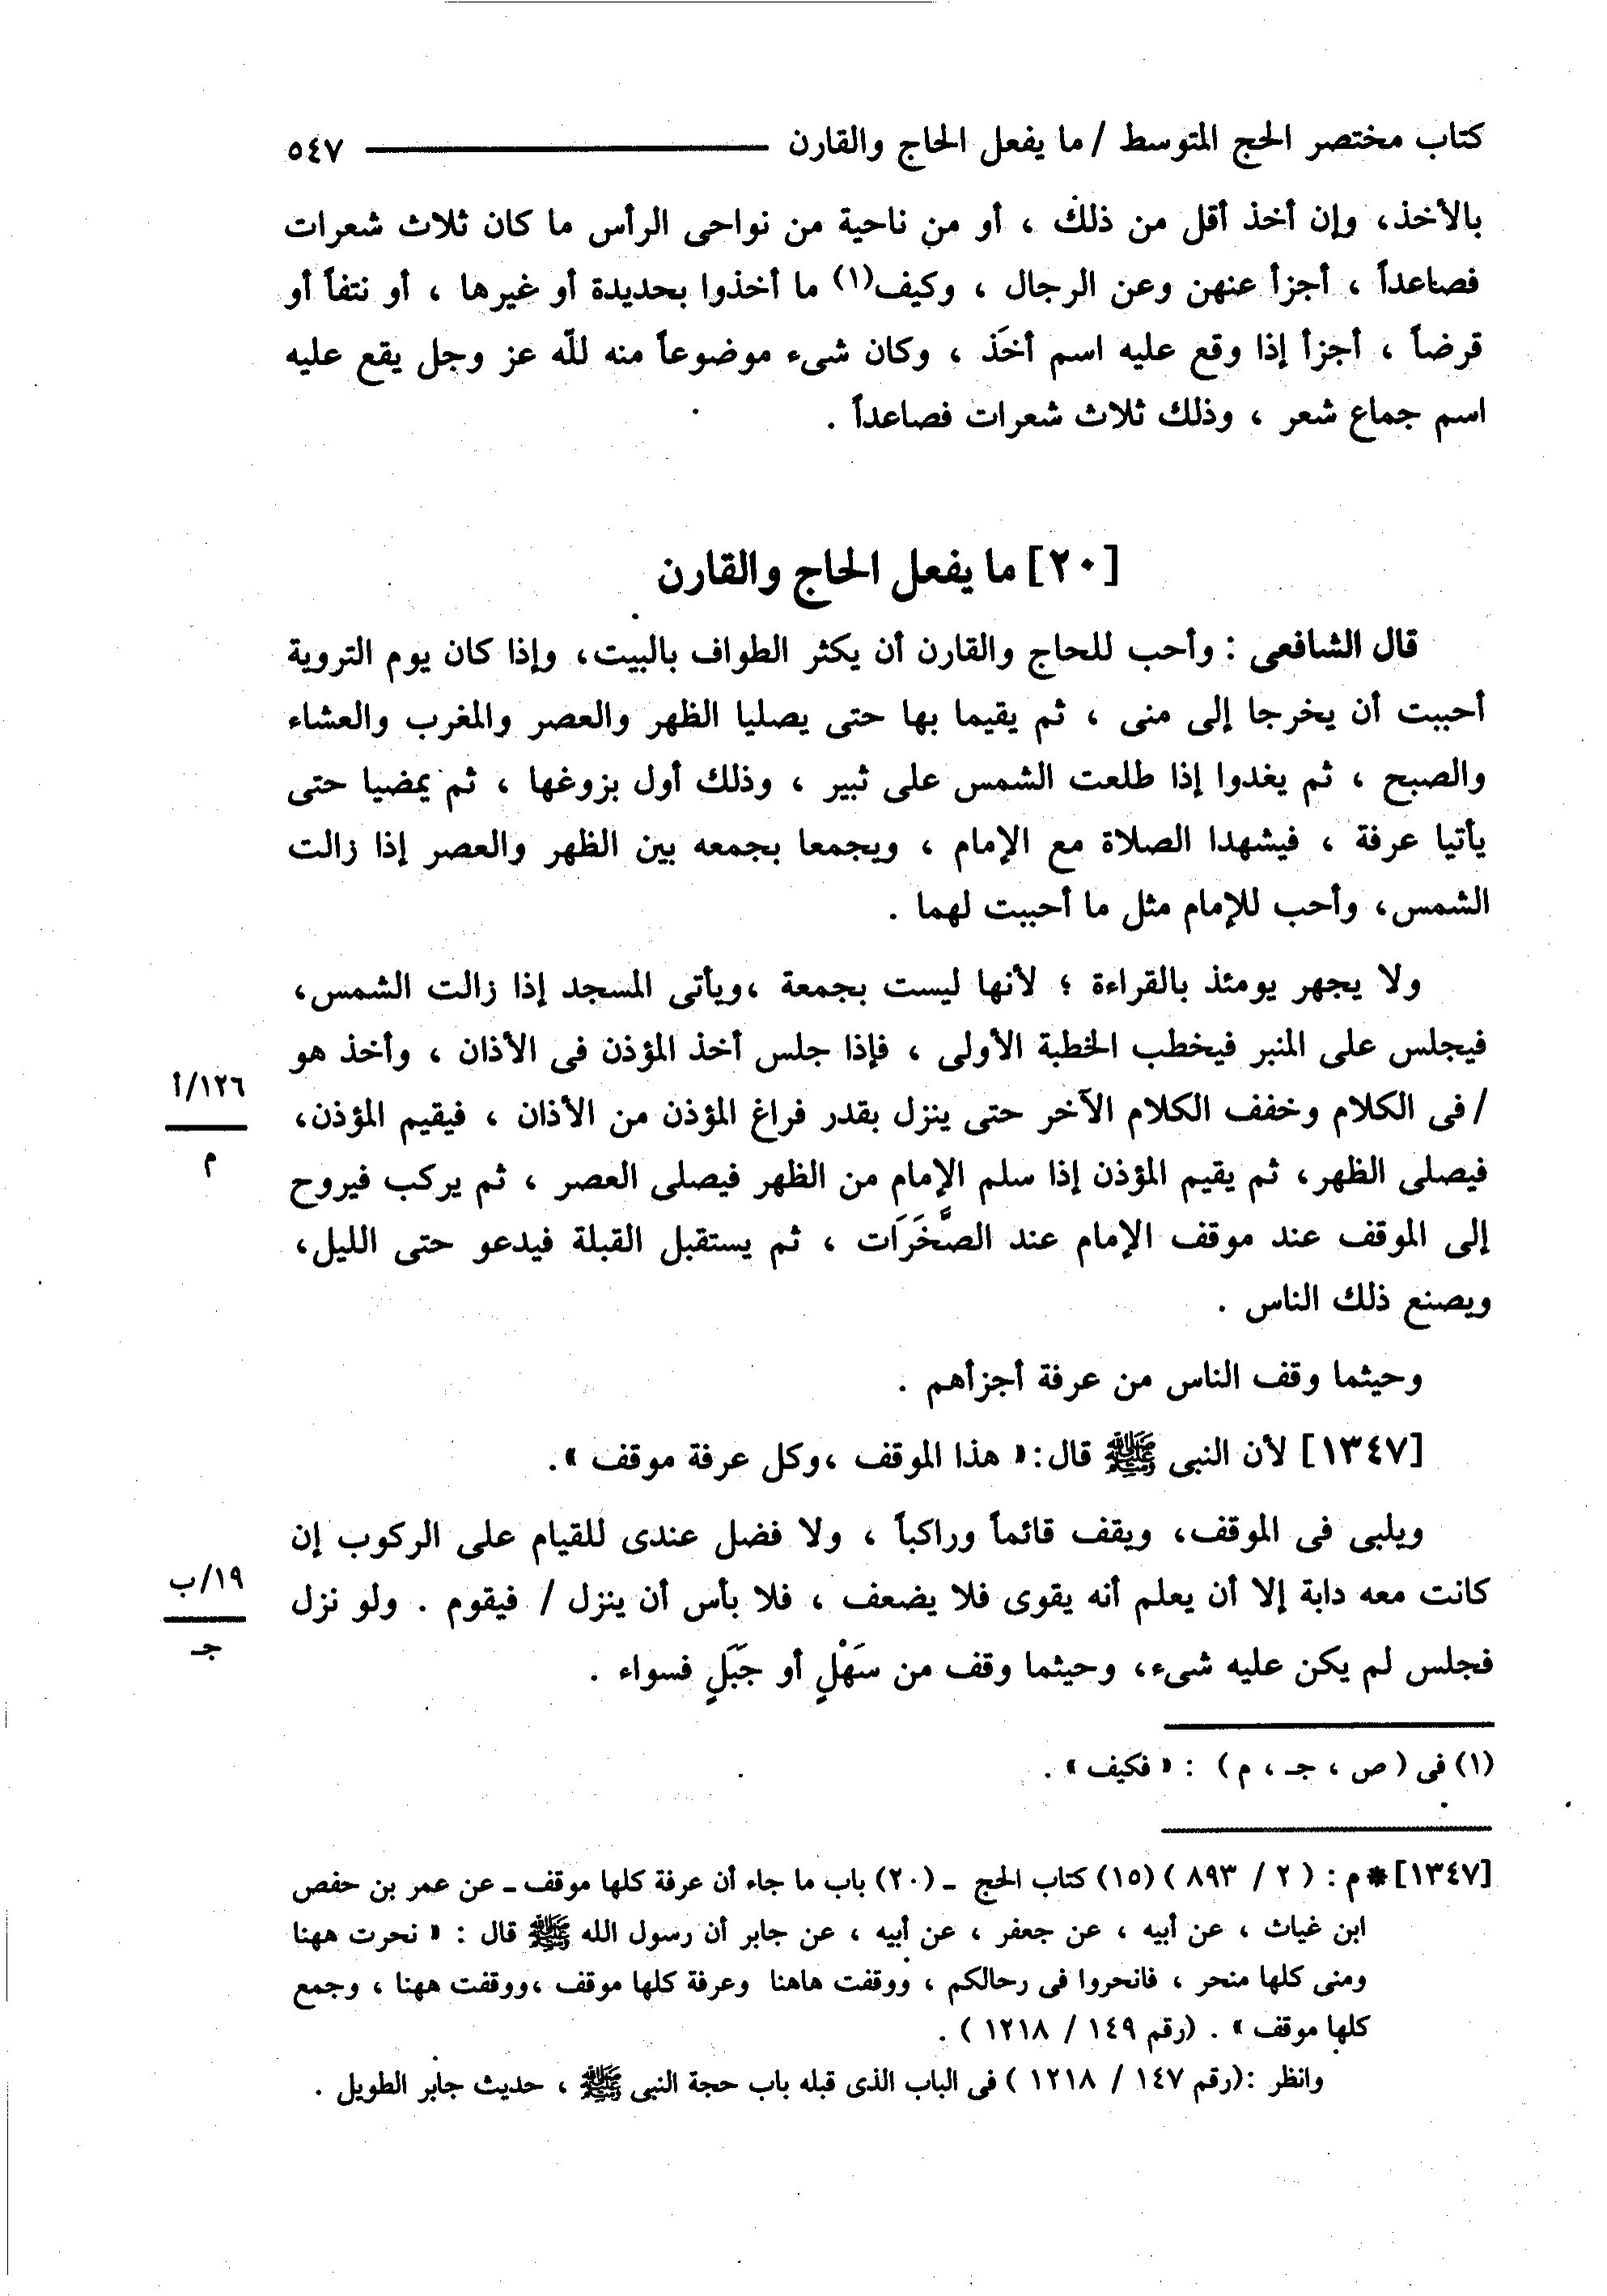 كتاب مختصر الحج المتوسط / ما يفعل الحاج والقارن ٥٤٧
بالأخذ، وإن أخذ أقل من ذلك ، أو من ناحية من نواحى الرأس ما كان ثلاث شعرات
فصاعداً ، أجزأ عنهن وعن الرجال ، وكيف(١) ما أخذوا بحديدة أو غيرها ، أو نتفاً أو
قرضاً ، أجزأ إذا وقع عليه اسم أخَذ ، وكان شىء موضوعاً منه للّه عز وجل يقع عليه
اسم جماع شعر ، وذلك ثلاث شعرات فصاعداً .
[٢٠] ما يفعل الحاج والقارن
قال الشافعى : وأحب للحاج والقارن أن يكثر الطواف بالبيت، وإذا كان يوم التروية
أحببت أن يخرجا إلى منى ، ثم يقيما بها حتى يصليا الظهر والعصر والمغرب والعشاء
والصبح ، ثم يغدوا إذا طلعت الشمس على ثبير ، وذلك أول بزوغها ، ثم يمضيا حتى
يأتيا عرفة ، فيشهدا الصلاة مع الإمام ، ويجمعا بجمعه بين الظهر والعصر إذا زالت
الشمس، وأحب للإمام مثل ما أحببت لهما .
ولا يجهر يومئذ بالقراءة ؛ لأنها ليست بجمعة ،ويأتى المسجد إذا زالت الشمس،
فيجلس على المنبر فيخطب الخطبة الأولى ، فإذا جلس أخذ المؤذن فى الأذان ، وأخذ هو
/ فى الكلام وخفف الكلام الآخر حتى ينزل بقدر فراغ المؤذن من الأذان ، فيقيم المؤذن،
١٢٦/أ
م
فيصلى الظهر، ثم يقيم المؤذن إذا سلم الإمام من الظهر فيصلى العصر ، ثم يركب فيروح
إلى الموقف عند موقف الإمام عند الصَّخَرَات ، ثم يستقبل القبلة فيدعو حتى الليل،
ويصنع ذلك الناس .
وحيثما وقف الناس من عرفة أجزأهم .
[١٣٤٧] لأن النبى ﷺ قال:« هذا الموقف ،وكل عرفة موقف ».
ويلبى فى الموقف، ويقف قائماً وراكباً ، ولا فضل عندى للقيام على الركوب إن
كانت معه دابة إلا أن يعلم أنه يقوى فلا يضعف ، فلا بأس أن ينزل / فيقوم . ولو نزل
١٩/ب
جـ
فجلس لم يكن عليه شىء، وحيثما وقف من سَهْلٍ أو جَبَلٍ فسواء .
(١) فى ( ص ، جـ ، م ) : « فكيف » .
[١٣٤٧]* م : ( ٢ / ٨٩٣ ) (١٥) كتاب الحج ـ (٢٠) باب ما جاء أن عرفة كلها موقف ـ عن عمر بن حفص
ابن غياث ، عن أبيه ، عن جعفر ، عن أبيه ، عن جابر أن رسول الله ﷺ قال : « نحرت ههنا
ومنى كلها منحر ، فانحروا فى رحالكم ، ووقفت هاهنا وعرفة كلها موقف ،ووقفت ههنا ، وجمع
كلها موقف » . (رقم ١٤٩ / ١٢١٨ ) .
وانظر :(رقم ١٤٧ / ١٢١٨ ) فى الباب الذى قبله باب حجة النبى ﷺ ، حديث جابر الطويل .